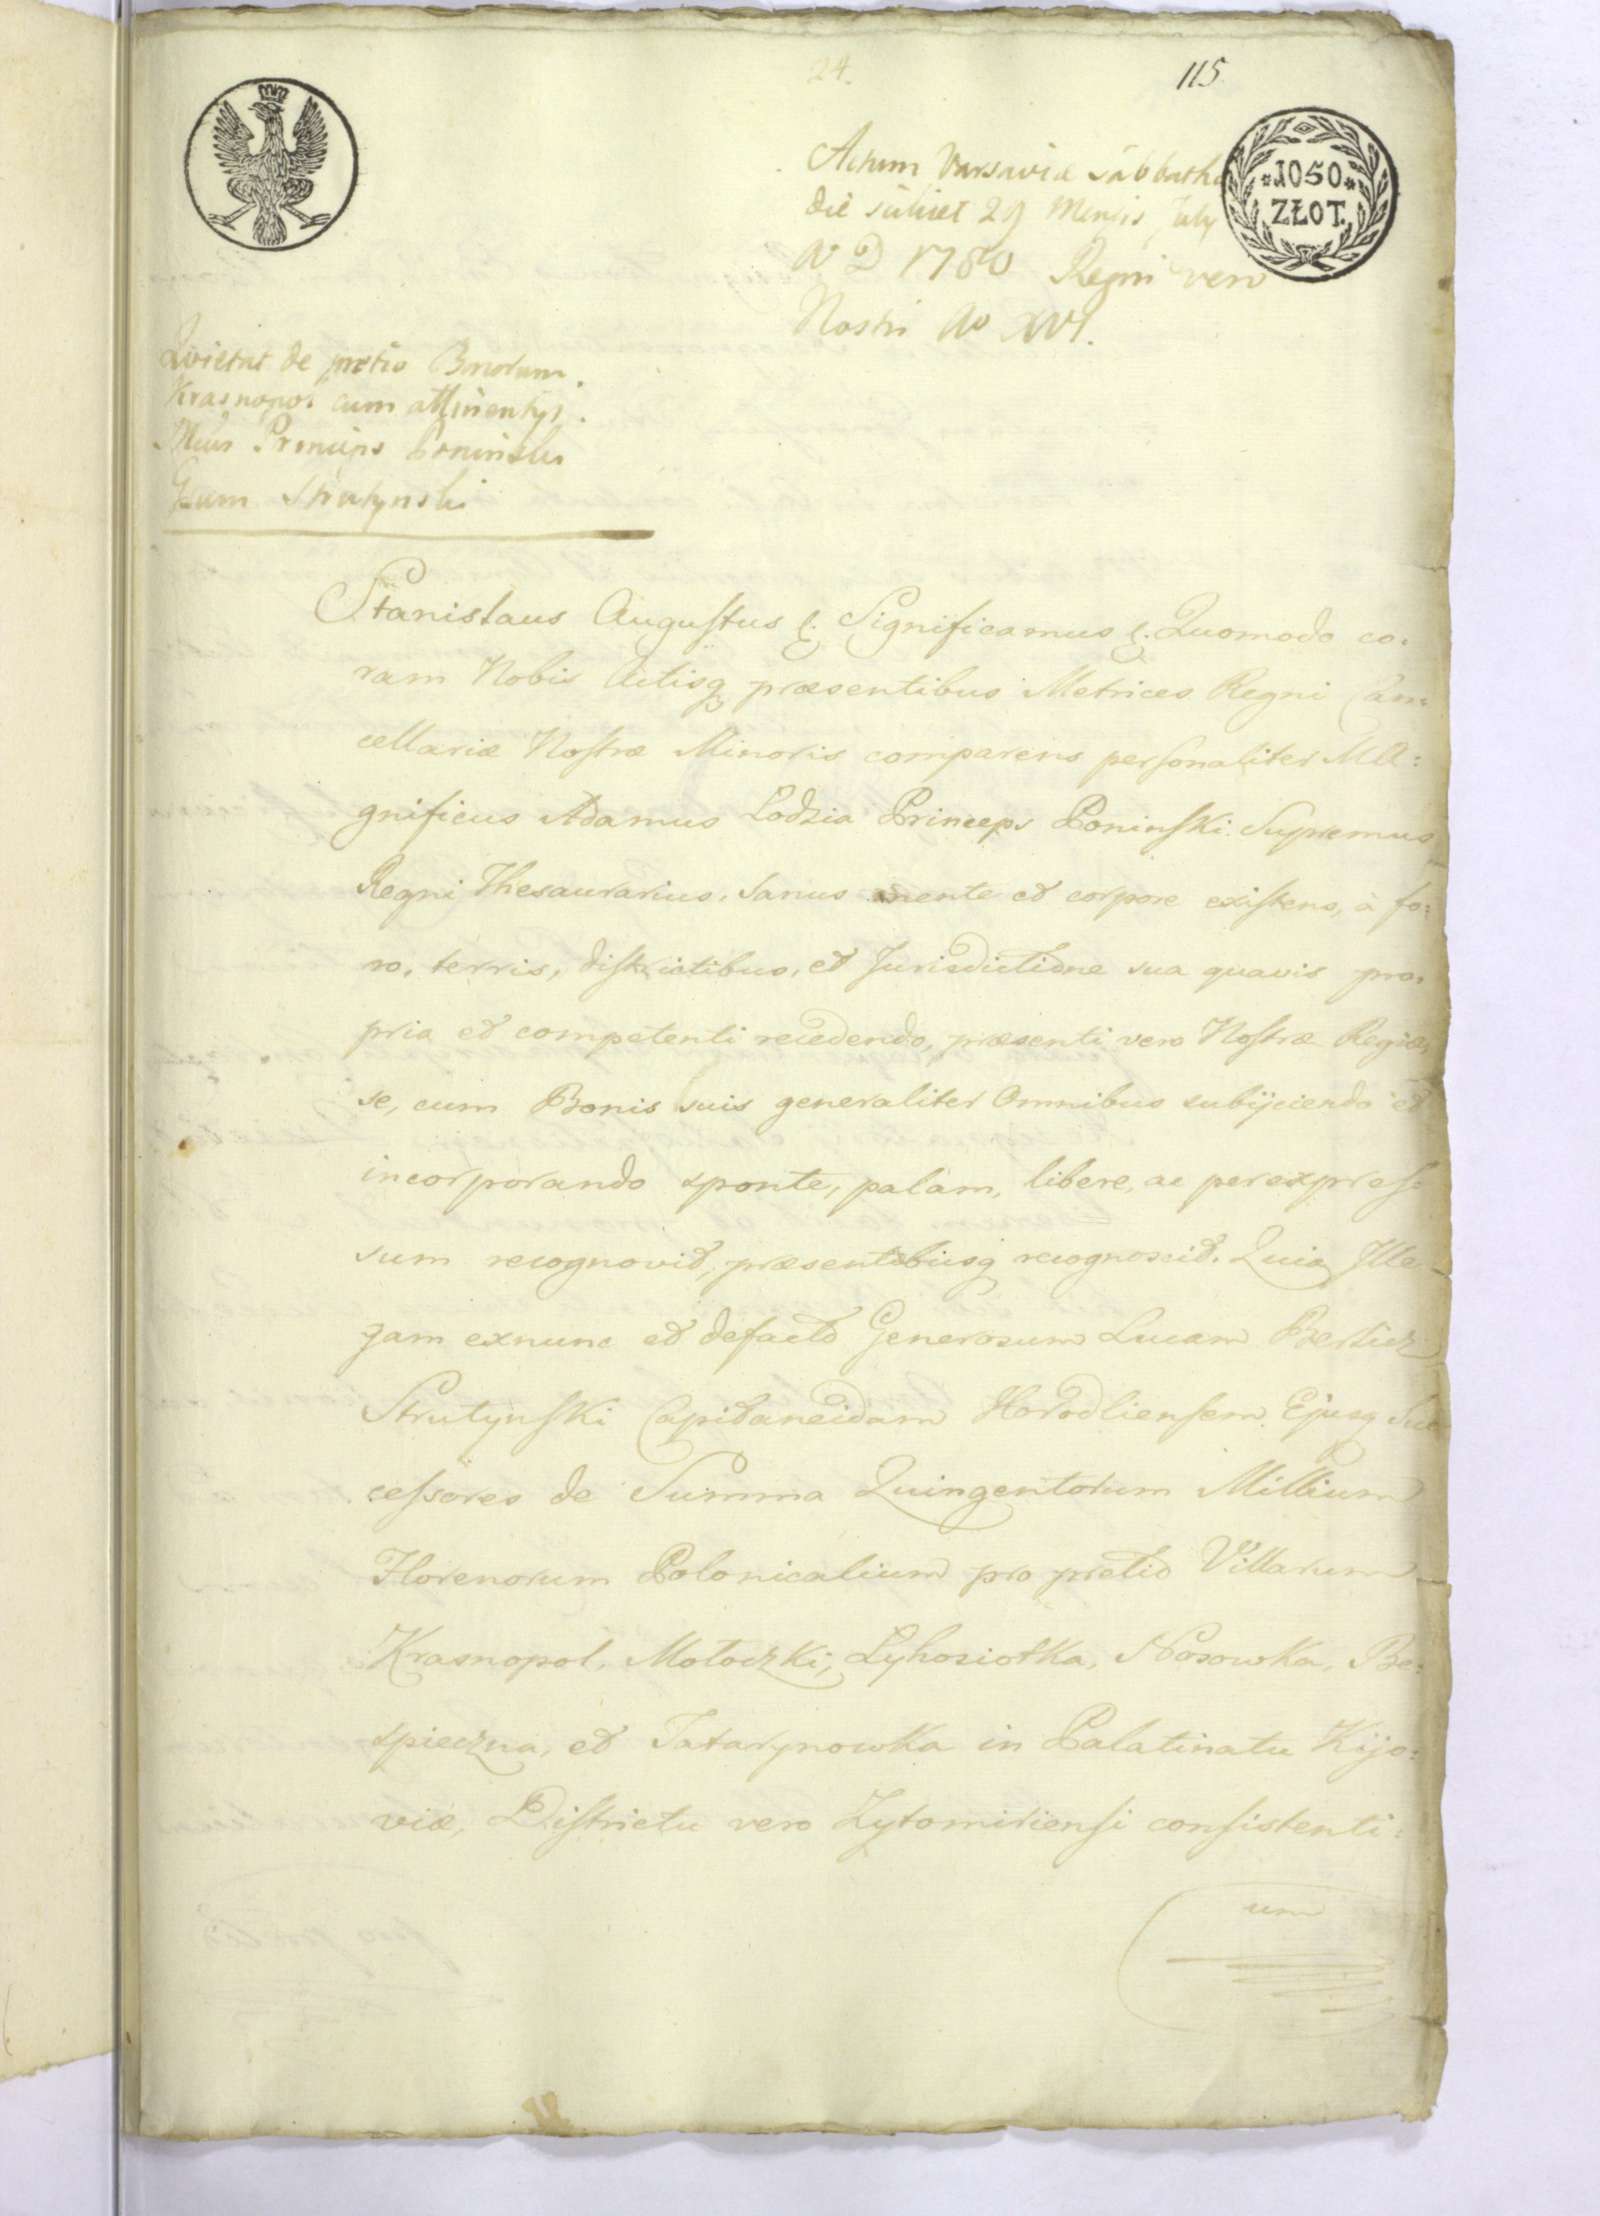 24.
115
Actum Varsaviæ Sabbatho
die scilicet 29 Mensis July
A D 1780 Regni vero
Nostri Ao XVI.
*1050*
ZŁOT.
Quietat de pretio Bonorum
Krasnopol cum attinentijs.
Princeps Poninski
Gsum Strutynski
Stanislaus Augustus Significamus Quomodo co:
ram Nobis Actisq præsentibus Metrices Regni Can:
cellariæ Nostræ Minoris comparens personaliter MA:
gnificus Adamus Lodzia Princeps Poninski Supremus
Regni Thesaurarius, Sanus mente et corpore existens, à fo:
ro, terris, districtibus, et Jurisdictione sua quavis pro:
pria et competenti recedendo, præsenti vero Nostræ Regiæ,
se, cum Bonis suis generaliter Omnibus subijciendo et
incorporando sponte, palam, libere, ac per expres:
sum recognovit, præsentibusq recognoscit. Quia Ille
jam exnunc et defacto Generosum Lucam
Strutynski Capitaneidam Horodliensem Ejusq Suc
cessores de Summa Quingentorum Millium
Florenorum Polonicalium pro pretio Villarum
Krasnopol, Motoczki, Lyhosiołka, Nosowka, Be:
spieczna, et Tatarynowka in Palatinatu Kijo:
viæ, Districtu vero Zytomiriensi consistenti:
um